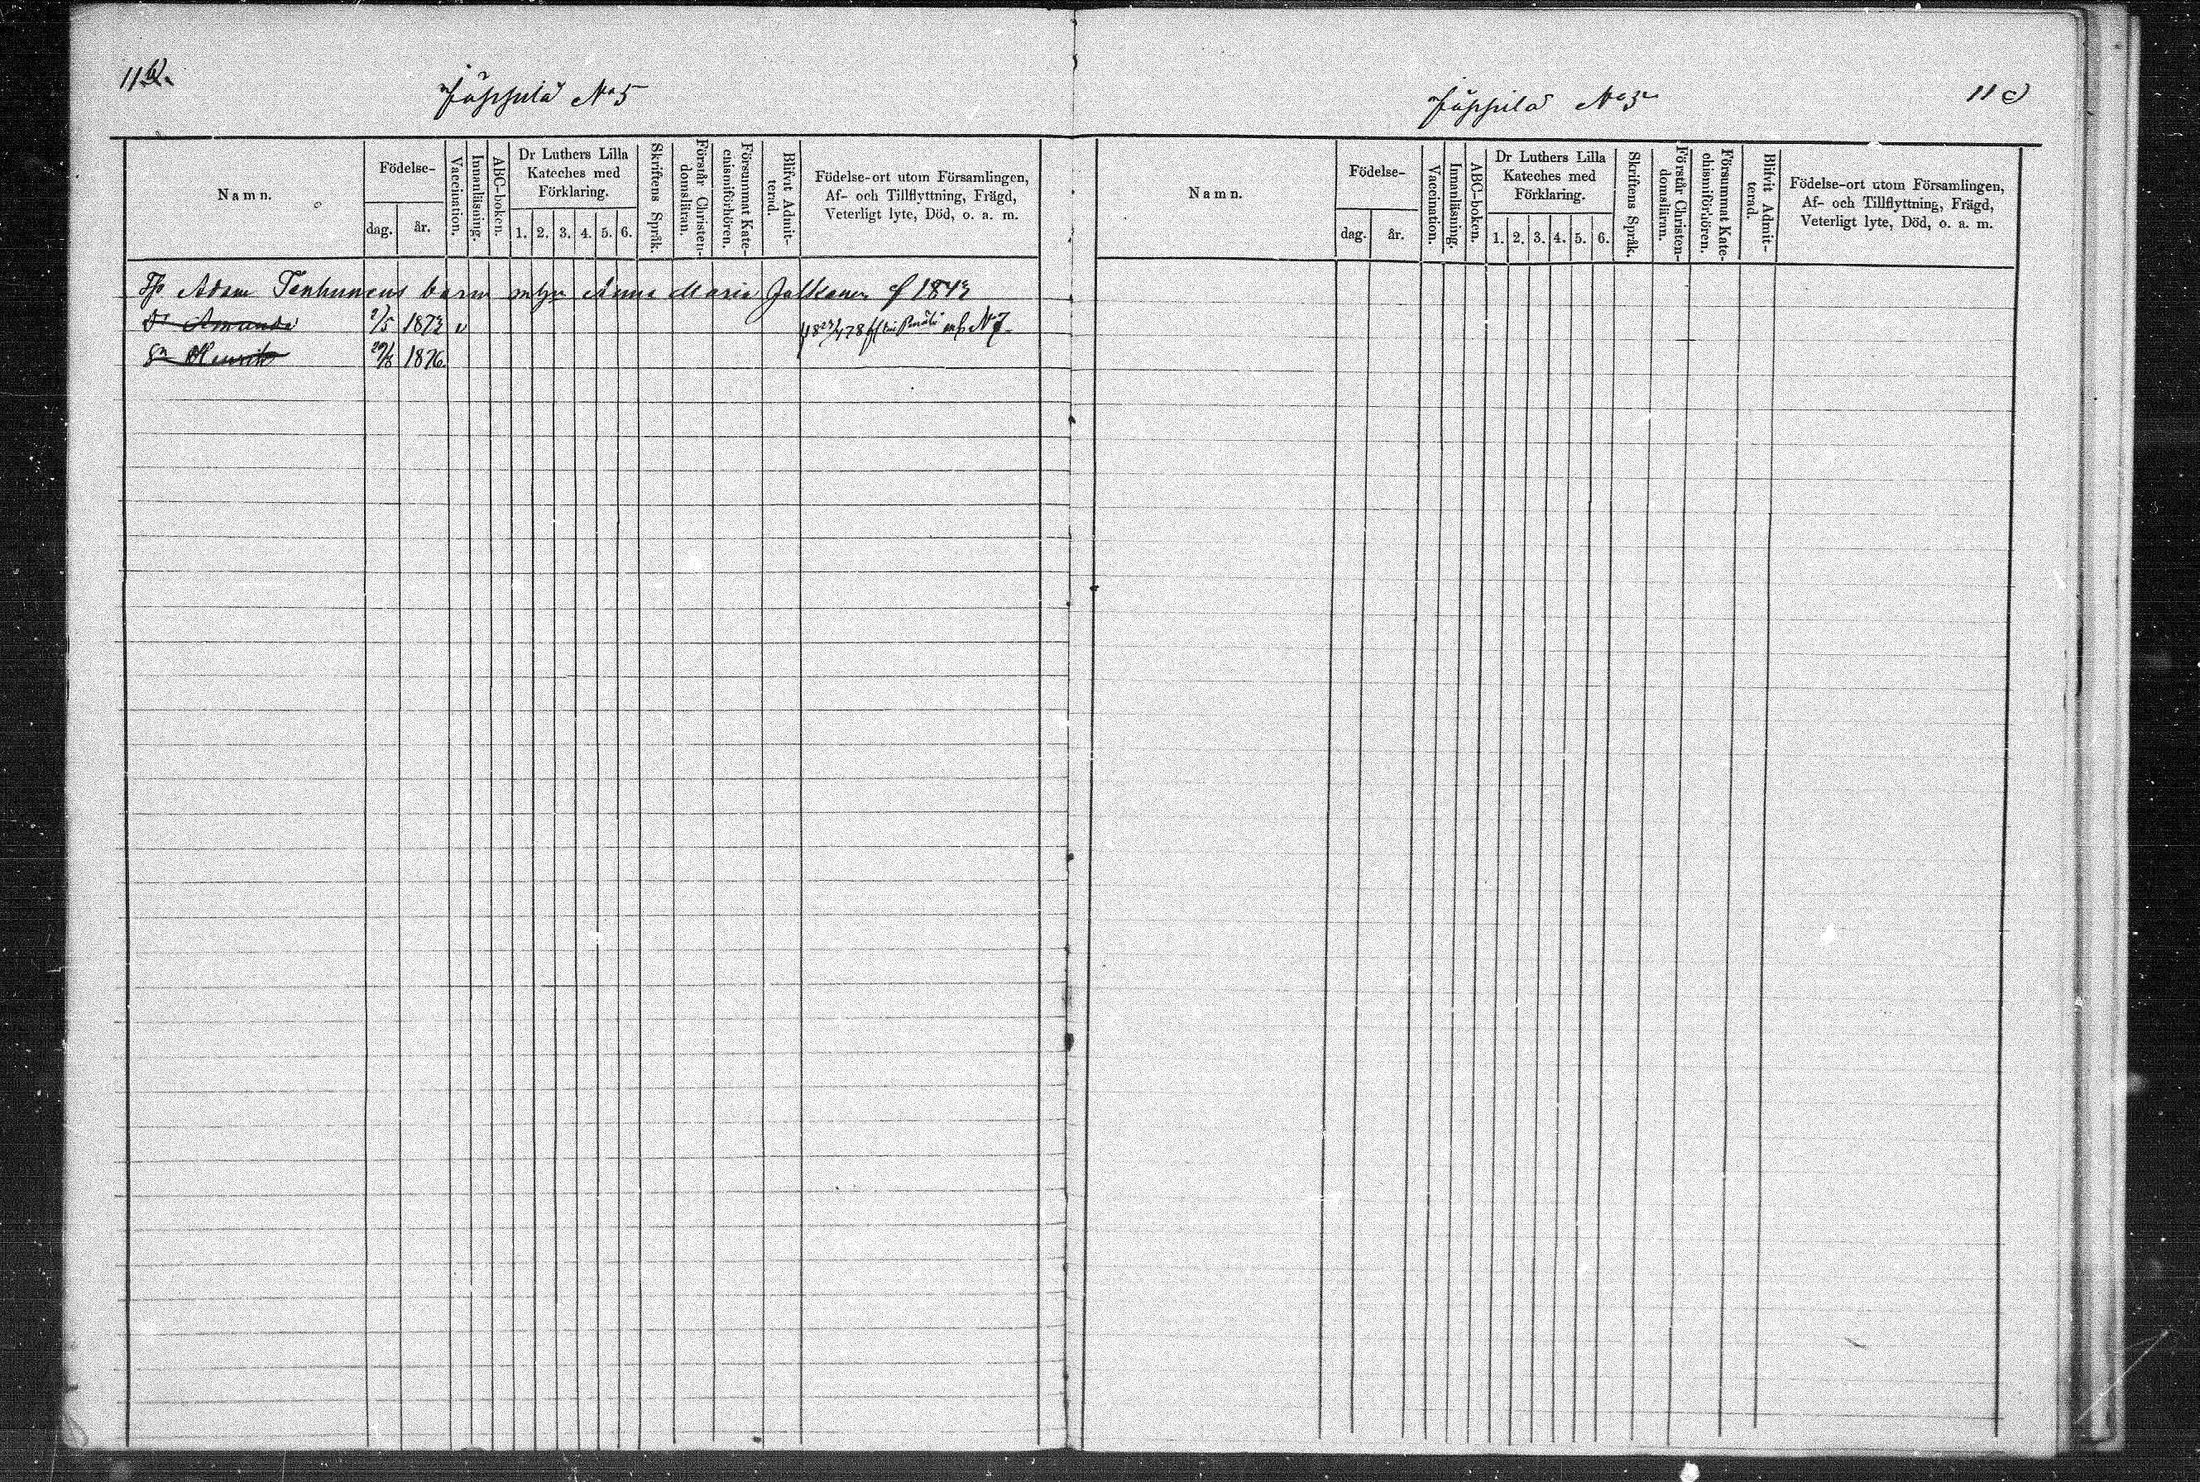 11
Jäppilä No 5
Namn.
Födelse-
dag.
år.
Vaccination.
Innanläsning.
ABC-boken.
Dr Luthers Lilla
Kateches med
Förklaring.
1. 2. 3. 4. 5. 6.
Skriftens Språk.
Förstår Christen-
domsläran.
Försummat Kate-
chismiförhören.
Blifvit Admit-
terad.
Födelse-ort utom Församlingen,
Af- och Tillflyttning, Frägd,
Veterligt lyte, Död, o. a. m.
Adam Tenhunens barn Anna Maria Jalkanen f 1843
Dr Amanda 2/5 1873 v No 7
Sn Henrik 29/8 1876
Jäppilä No 5
11 c)
Namn.
Födelse-
dag.
år.
Vaccination.
Innanläsning.
ABC-boken.
Dr Luthers Lilla
Kateches med
Förklaring.
1. 2. 3. 4. 5. 6.
Skriftens Språk.
Förstår Christen-
domsläran.
Försummat Kate-
chismiförhören.
Blifvit Admit-
terad.
Födelse-ort utom Församlingen,
Af- och Tillflyttning, Frägd,
Veterligt lyte, Död, o. a. m.